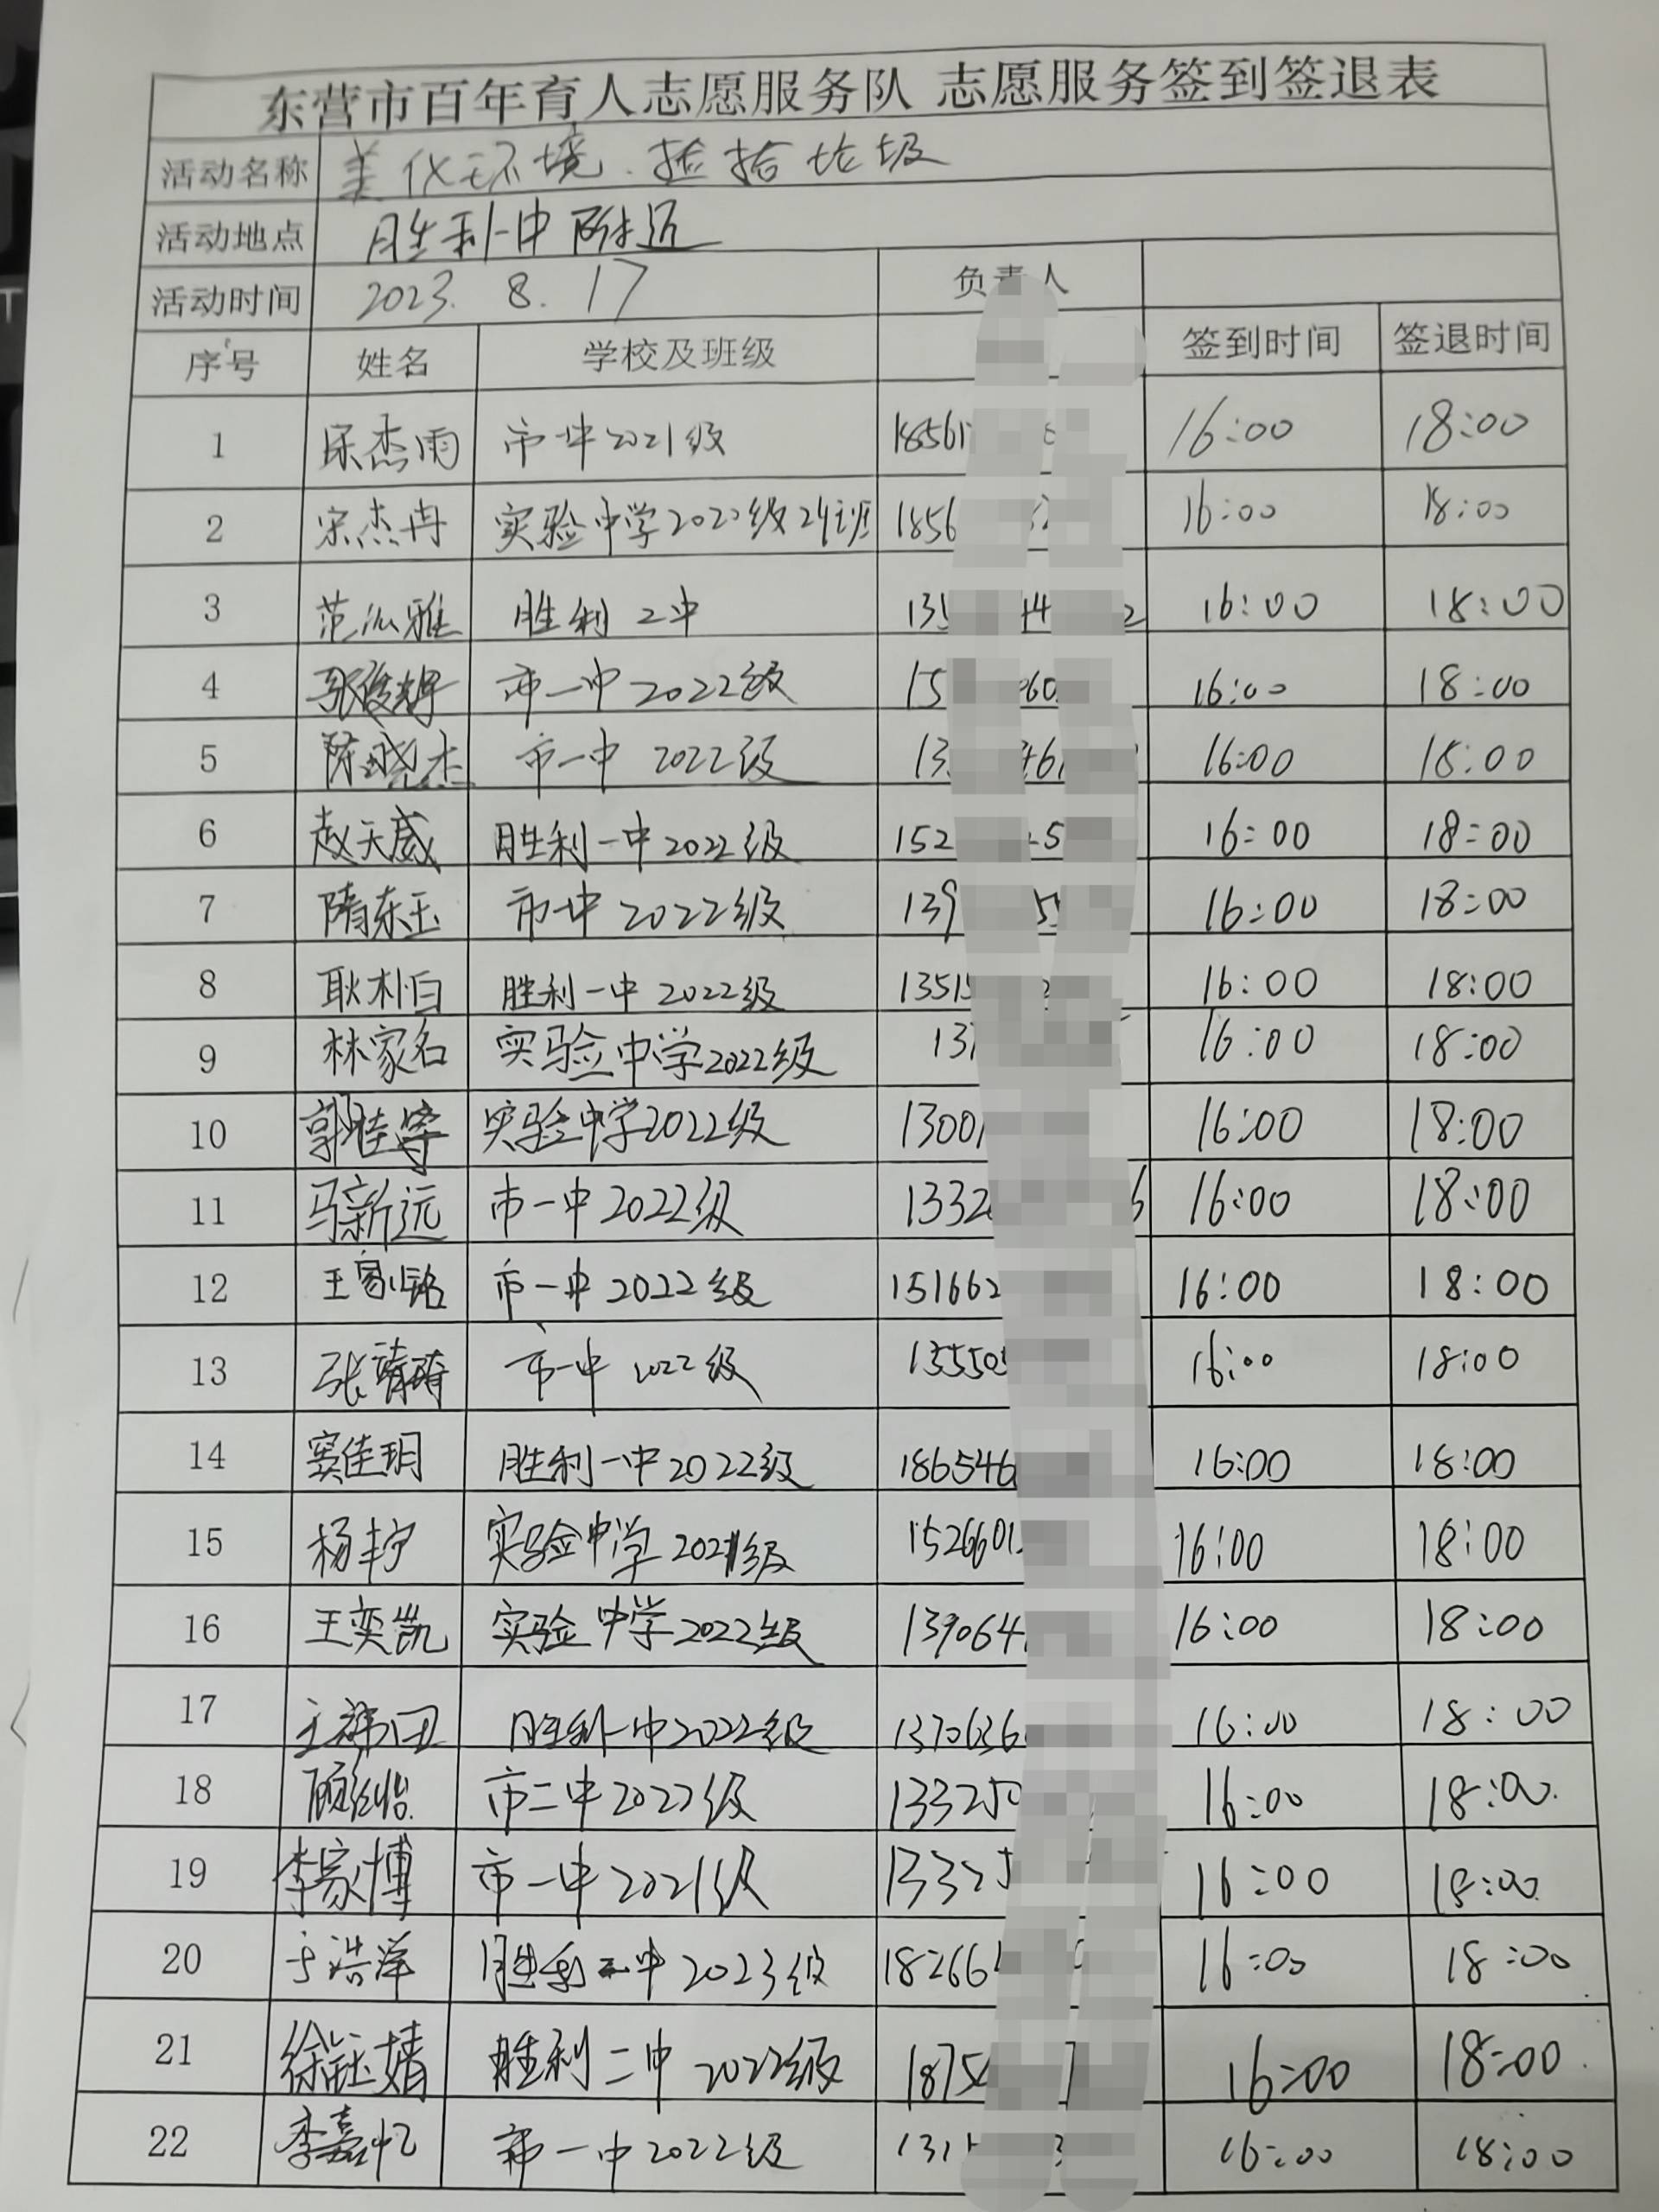 东营市百年育人志愿服务队 志愿服务签到签退表
活动名称 美化环境.捡拾垃圾
活动地点 胜利一中附近
活动时间 2023.8.17 负责人
序号 姓名 学校及班级 签到时间 签退时间
1 宋杰雨 市一中2021级 18561 16:00 18:00
2 宋杰冉 实验中学2022级24班 1856 16:00 18:00
3 范沁雅 胜利二中 135 4 2 16:00 18:00
4 张俊辉 市一中2022级 15 60 16:00 18:00
5 陈晓杰 市一中 2022级 13 46 16:00 18:00
6 赵天威 胜利一中2022级 152 5 16:00 18:00
7 隋东玉 市一中 2022级 139 5 16:00 18:00
8 耿朴白 胜利一中 2022级 1351 16:00 18:00
9 林家名 实验中学2022级 13 16:00 18:00
10 郭佳宁 实验中学2022级 1300 16:00 18:00
11 马新远 市一中2022级 1332 6 16:00 18:00
12 王家铭 市一中2022级 151662 16:00 18:00
13 张靖琦 市一中 2022级 13550 16:00 18:00
14 窦佳玥 胜利一中2022级 186546 16:00 18:00
15 杨丰宁 实验中学2021级 1526601 16:00 18:00
16 王奕凯 实验中学2022级 139064 16:00 18:00
17 王祎田 胜利一中2022级 1370636 16:00 18:00
18 顾怡 市二中2022级 133250 16:00 18:00
19 李家博 市一中2021级 13325 16:00 18:00
20 于浩洋 胜利二中2023级 18266 16:00 18:00
21 徐钰婧 胜利二中 2022级 1875 7 16:00 18:00
22 李嘉忆 市一中2022级 131 3 16:00 18:00